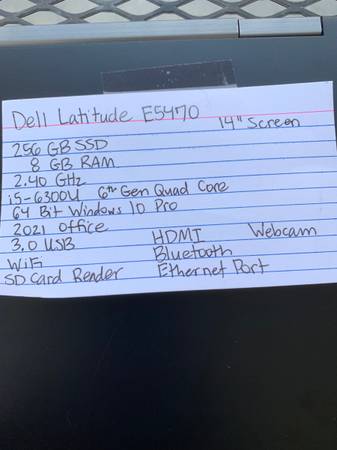 Dell Latitude E5470
14" Screen
256 GB SSD
8 GB RAM
2.40 GHz
i5-6300U 6th Gen Quad Core
64 Bit Windows 10 Pro
2021 Office
3.0 USB HDMI Webcam
WiFi Bluetooth
SD Card Render Ethernet Port